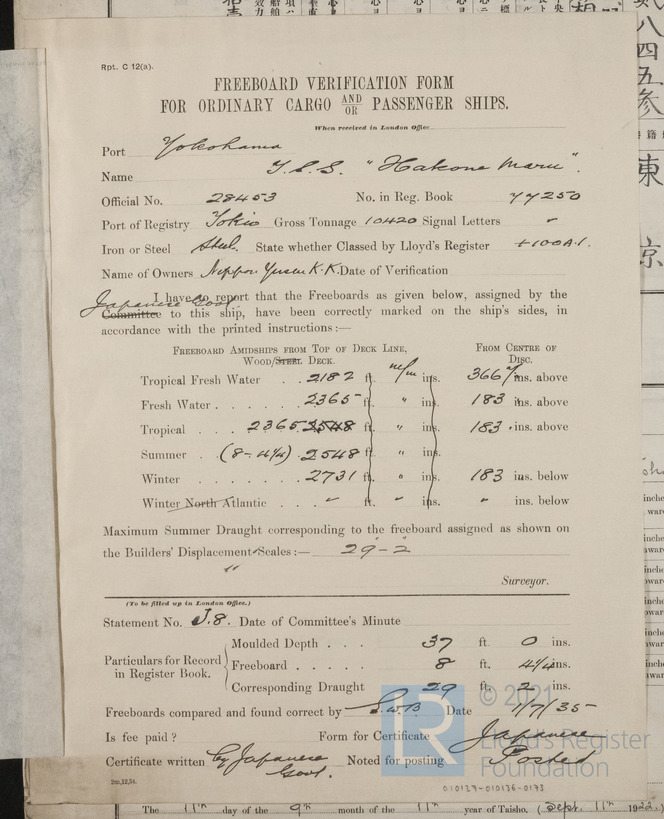 Rpt. C 12(a).
FREEBOARD VERIFICATION FORM
FOR ORDINARY CARGO AND/OR PASSENGER SHIPS.
When received in London Office
Port Yokohama
Name T.S.S. "Hakone Maru".
Official No. 28453 No. in Reg. Book 77250
Port of Registry Tokio Gross Tonnage 10420 Signal Letters "
Iron or Steel Steel. State whether Classed by Lloyd's Register +100A.1.
Name of Owners Nippon Yusen K.K. Date of Verification
I have to report that the Freeboards as given below, assigned by the
Japanese Govt.
Committee to this ship, have been correctly marked on the ship's sides, in
accordance with the printed instructions:—
FREEBOARD AMIDSHIPS FROM TOP OF DECK LINE, WOOD/STEEL DECK.
FROM CENTRE OF DISC.
Tropical Fresh Water . . 2182 ft. m/m ins. 366 m/m ins. above
Fresh Water . . . . . . 2365 ft. " ins. 183 ins. above
Tropical . . . 2365 2548 ft. " ins. 183 . ins. above
Summer . . (8-4¼) . 2548 ft. " ins.
Winter . . . . . . . 2731 ft. " ins. 183 ins. below
Winter North Atlantic . . . " ft. " ins. " ins. below
Maximum Summer Draught corresponding to the freeboard assigned as shown on
the Builders' Displacement Scales:— 29'-2"
"
Surveyor.
(To be filled up in London Office.)
Statement No. J.8. Date of Committee's Minute
Particulars for Record in Register Book.
Moulded Depth . . . 37 ft. 0 ins.
Freeboard . . . . . 8 ft. 4¼ ins.
Corresponding Draught 29 ft. 2 ins.
Freeboards compared and found correct by S.W.B. Date 1/7/35
Is fee paid? Form for Certificate Japanese
Certificate written by Japanese Govt. Noted for posting Posted
2m,12,34.
© 2021
LR
Lloyd's Register
Foundation
010127-010136-0193
The 11th day of the 9th month of the 11th year of Taisho. (Sept. 11th 1922.)
八四五参
東
京